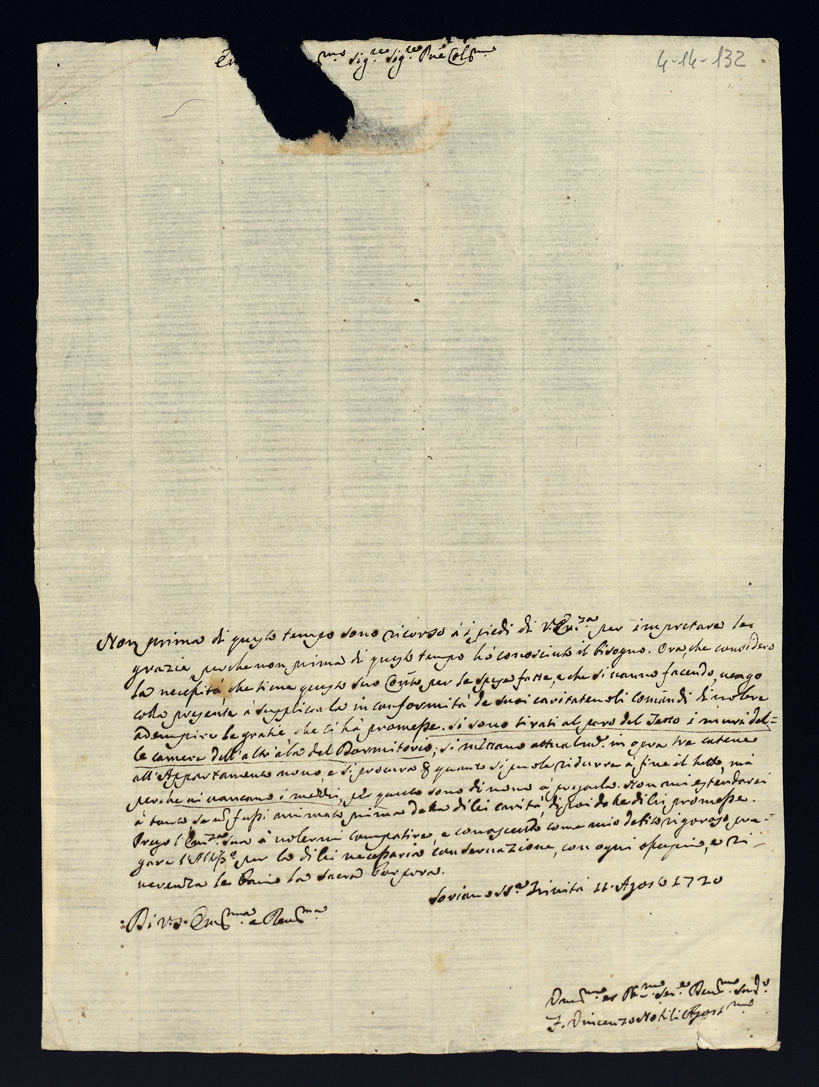 Sig.re Sig.re Pne Col.mo
4-14-132
Non prima di questo tempo sono ricorso à i piedi di V. Em.za per impetrare le
grazie, perche non prima di questo tempo hò conosciuto il bisogno. Ora, che considero
la necessità, che tiene questo suo Con.to per le spese fatte, e che si vanno facendo, vengo
colla presente a supplicarla in conformità de suoi caritatevoli comandi di volere
adempire le gratie, che ci hà promesse. Si sono tirati al paro del Tetto i muri del=
le camere dell'altr'ala del Dormitorio, si mettano attualm.te in opra tre catene
all'Appartamento novo, e si procura quanto si puole ridurre à fine il tutto, mà
perche ci mancano i mezzi, per questo sono di novo à pregarla. Non mi estenderei
à tanto se non fussi animato prima dalla di lei carità, di poi dalle di lei promesse.
Prego l'Em.za Sua à volermi compatire, e conoscendo come mio debito rigoroso, pre-
gare l'Altiss.o per la di lei necessaria conservazione, con ogni ossequio, e ri-
verenza le bacio la Sacra Porpora.
Soriano SS.a Trinità 11. Agosto 1720
Di V.a Em.ma e Rev.ma
F. Vincenzo Nobili Agost.no